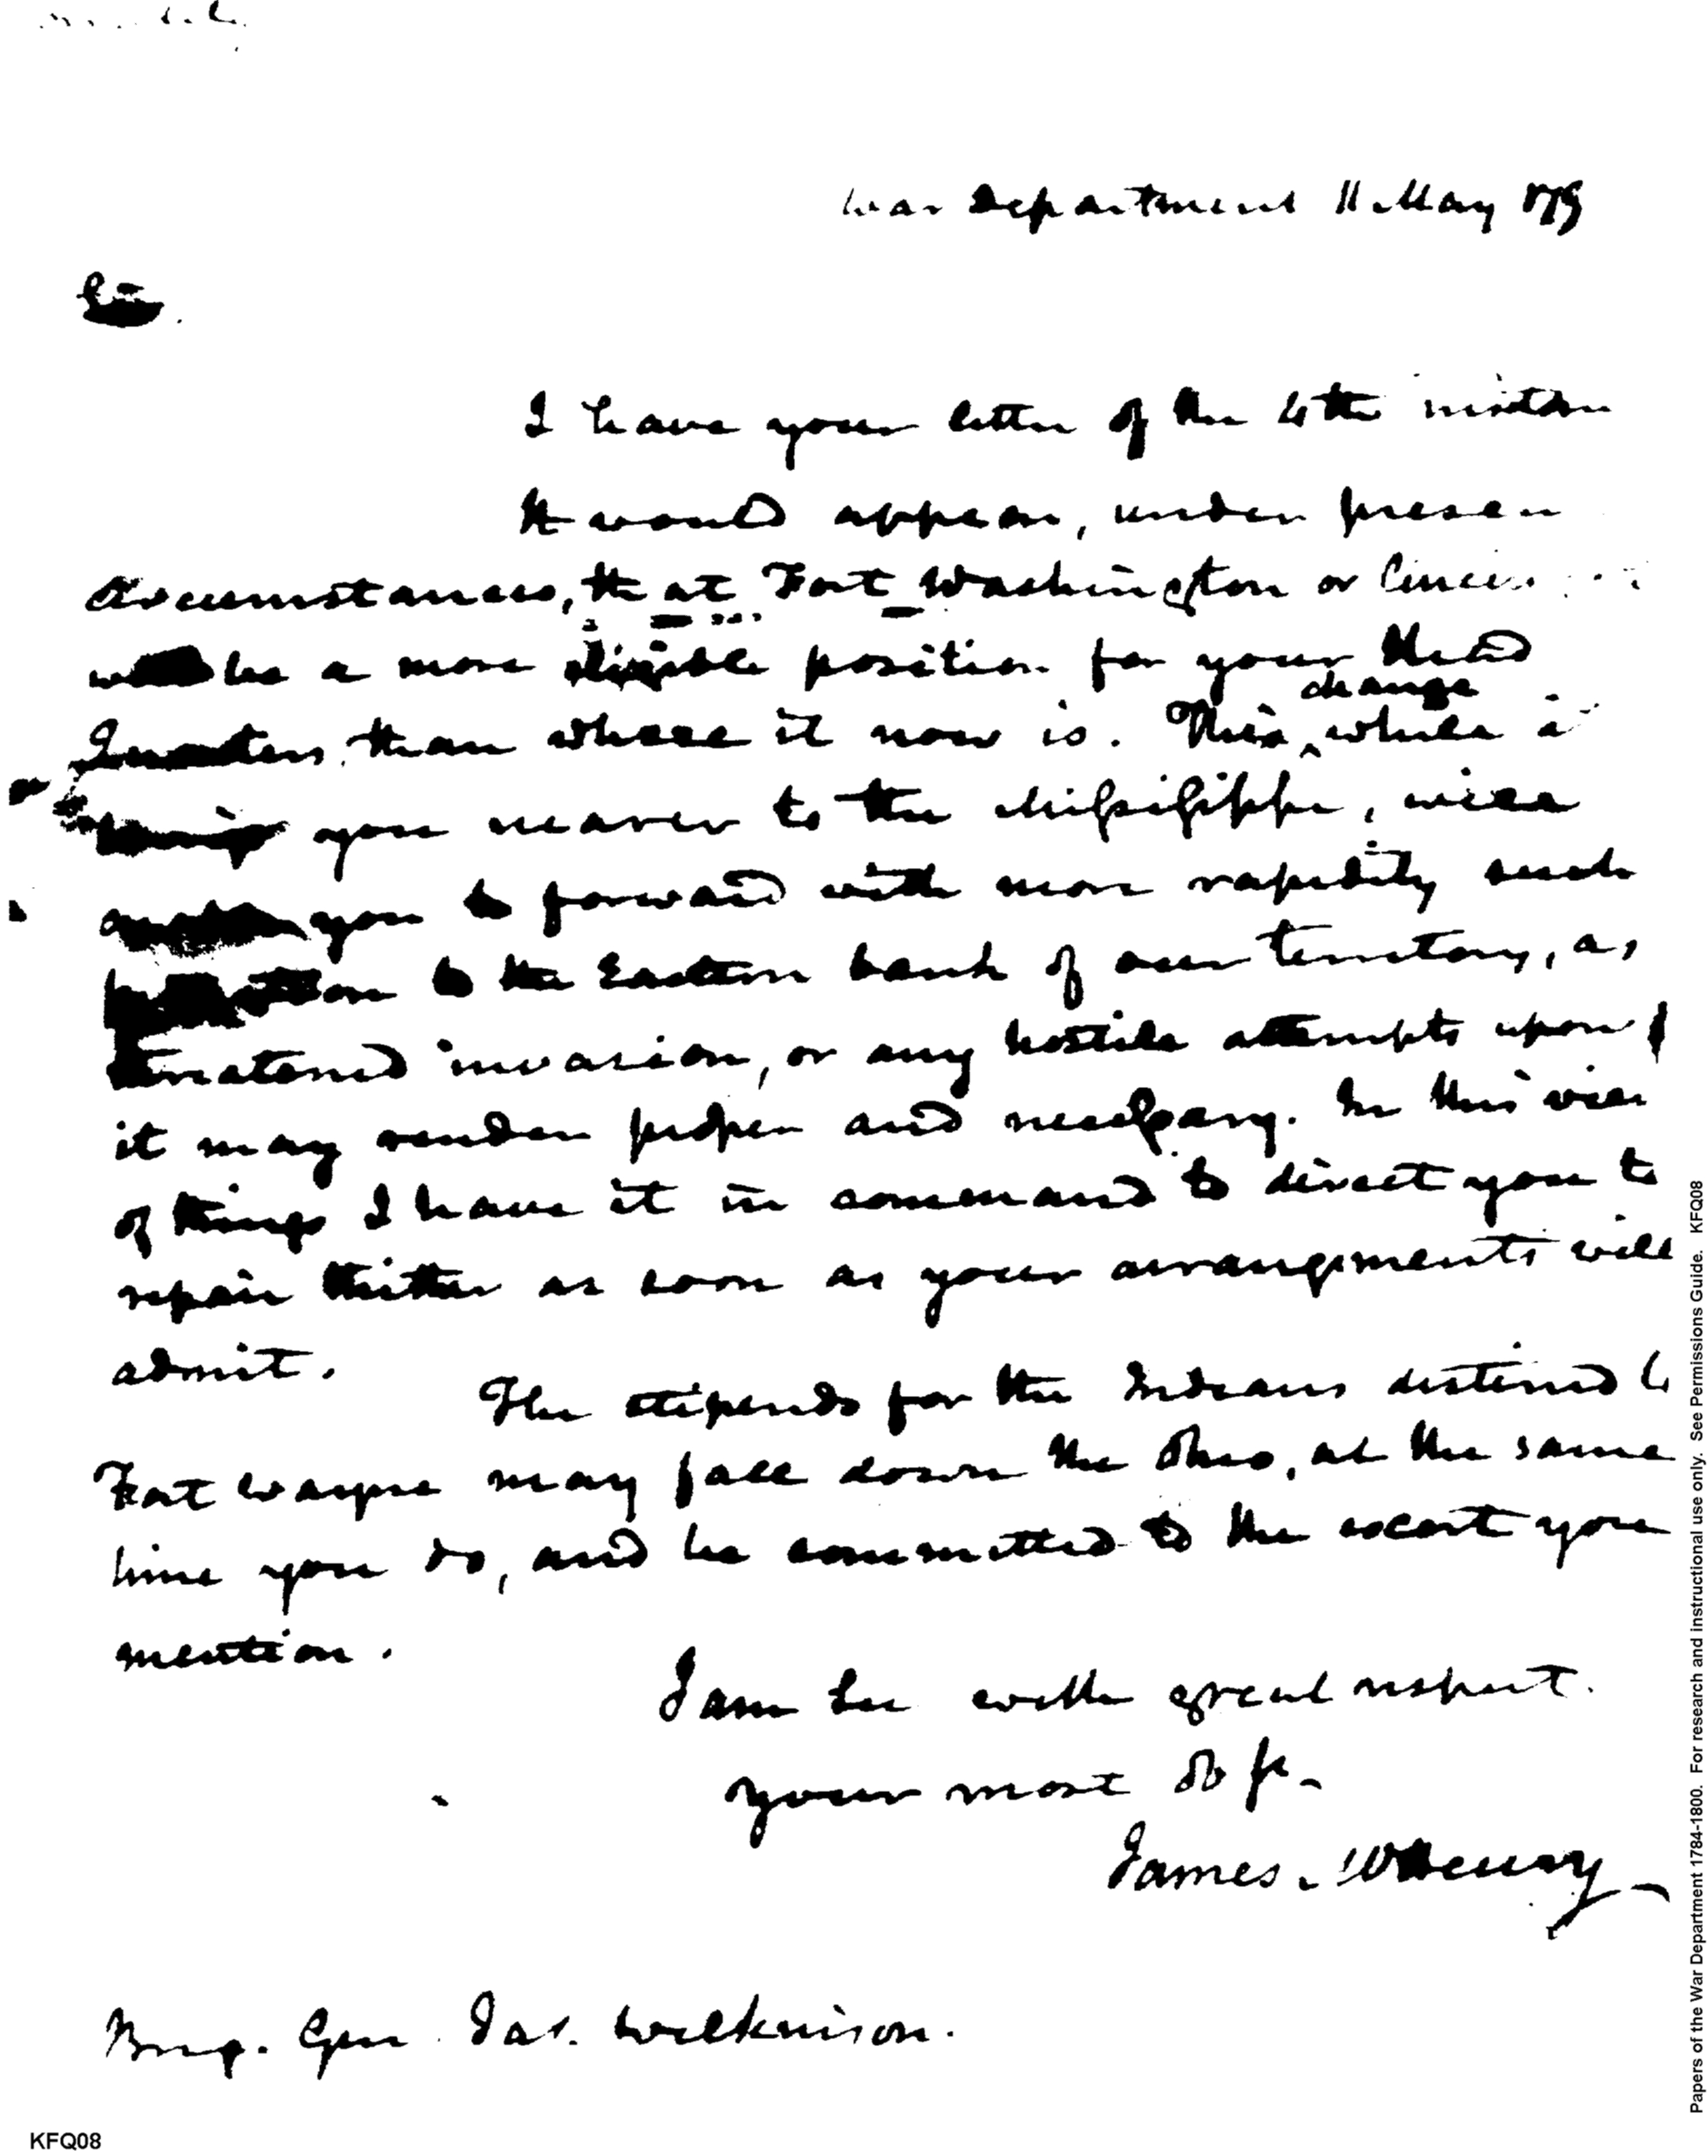 War Department 11 May 179
Sir.
I have your letter of the 4th instan
It would appear, under presen
circumstances, that Fort Washington or Cincin
will be a more eligible position for your Head
Quarters, than where it now is. This change, while i
brings you nearer to the Missisippi, will
enable you to forward with more rapidity such
to the Eastern bank of our territory, as
threatened invasion, or any hostile attempts upon
it may render proper and necessary. In this view
of things I have it in command to direct you to
repair thither as soon as your arrangements will
admit.
The stipends for the Indians destined to
Fort Wayne may fall down the Ohio, at the same
time you do, and be committed to the escort you
mention.
I am Sir with great respect.
your most Ob
James McHenry
Brig. Gen Jas. Wilkinson.
KFQ08
Papers of the War Department 1784-1800. For research and instructional use only. See Permissions Guide. KFQ08